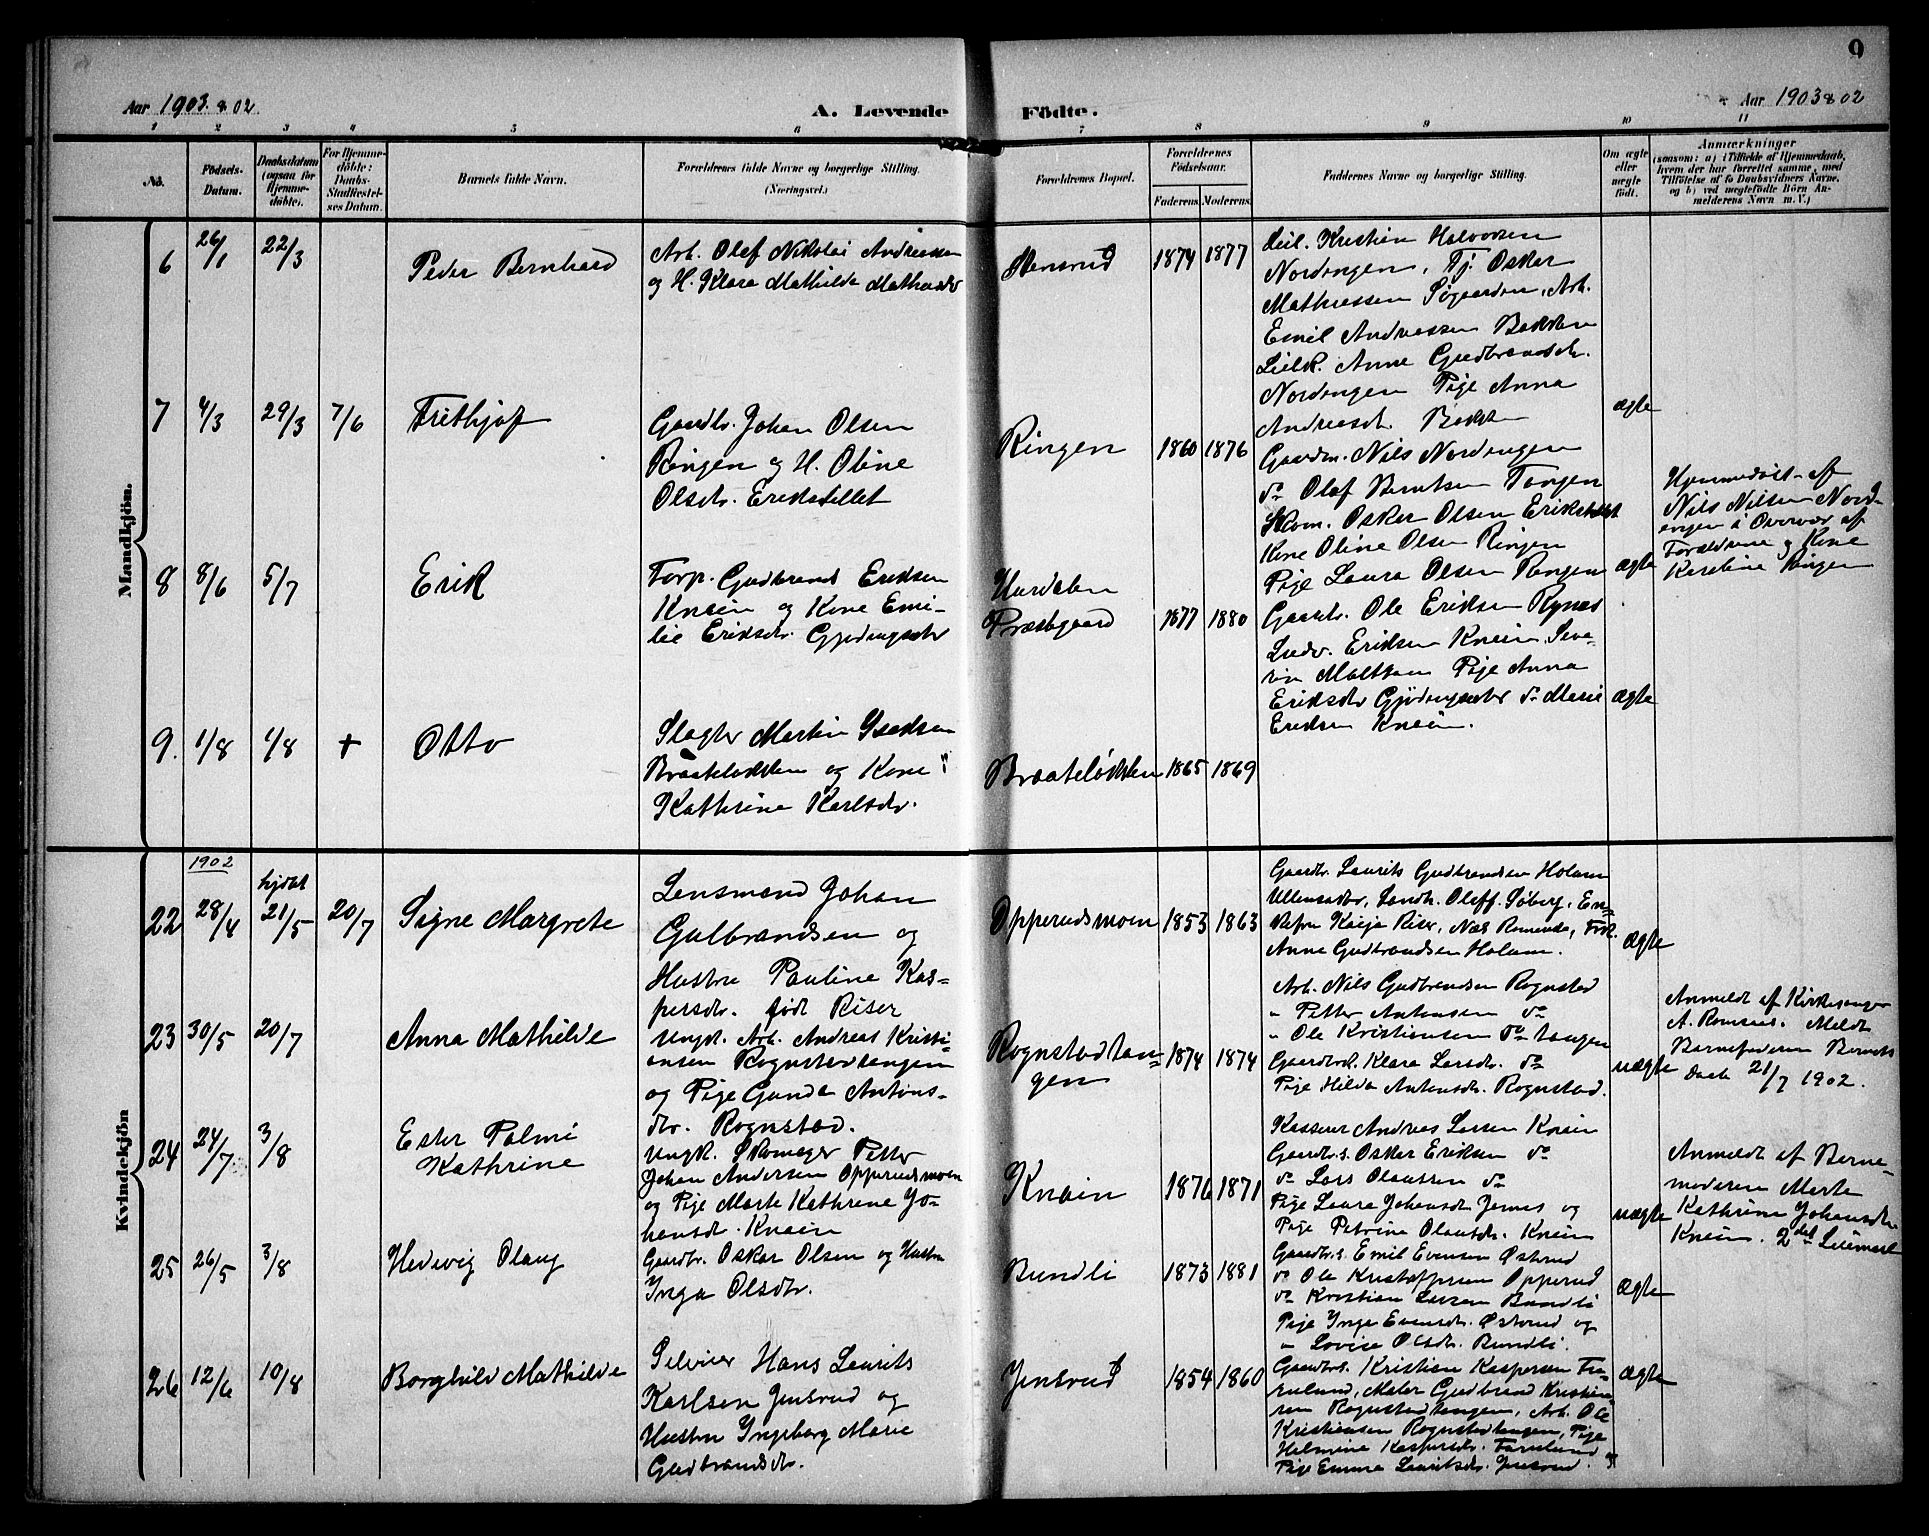 9
Aar 1903 & 02
A. Levende Födte.
Aar 1903 & 02
1 2 3 4 5 6 7 8 9 10 11
No.
Födsels-Datum.
Daabsdatum (ogsaa for Hjemme-döbte).
For Hjemme-döbte: Daabs-Stadfæstel-ses Datum.
Barnets fulde Navn.
Forældrenes fulde Navne og borgerlige Stilling. (Næringsvei.)
Forældrenes Bopæl.
Forældrenes Födselsaar.
Faderens. Moderens.
Faddernes Navne og borgerlige Stilling.
Om ægte eller uægte födt.
Anmærkninger
(saasom: a) i Tilfælde af Hjemmedaab, hvem der har forrettet samme, med Tilföielse af to Daabsvidners Navne, og b) ved uægtefödte Börn An-melderens Navn m. V.)
Mandkjön.
6 26/1 22/3 Peder Bernhard
Arb. Olaf Nikolai Andreassen
og H. Klara Mathilde Mathiasdtr
Stensrud 1874 1877
Nordengen, Tj. Oskar
Mathiessen Søgaarden, Arb.
Emil Andreassen Bakken
Anne Gudbrandsdtr.
Nordengen Pige Anna
Andreasdtr. Bakken
ægte
7 4/3 29/3 7/6 Frithjof
Gaardbr. Johan Olsen
Ringen og H. Oline
Olsdtr. Erikstellet
Ringen 1860 1876
Gaardm. Nils Nordengen
do Olaf Berntsen Tangen
Skom. Oskar Olsen Erikstellet
Kone Oline Olsen Ringen
Pige Laura Olsen Ringen
ægte
Hjemmedøbt af
Nils Nilsen Nord-
engen i Overvær af
Forældrene og Kone
Karoline Ringen
8 8/6 5/7 Erik
Torp. Gudbrand Eriksen
Knain og Kone Emi-
lie Eriksdtr. Gjødingsæter
Hurdalen
Præstegaard 1877 1880
Gaardbr. Ole Eriksen Rynes
Ludv. Eriksen Knain, Seve-
rin Maltsen Pige Anna
Eriksdtr Gjødingsæter do Marie
Eriksen Knain.
ægte
9. 1/8 1/8 + Otto
Slagter Martin Isaksen
Braateløkken og Kone
Kathrine Karlsdtr.
Braateløkken 1865 1869
Kvindekjön
1902
22 28/4 hjdøbt 21/5 20/7 Signe Margrete
Lensmand Johan
Gulbrandsen og
Hustru Pauline Kas-
persdtr. født Riser
Opperudsmoen 1853 1863
Gaardbr. Laurits Gudbrandsen Holum
Ullensaker, Landh. Oluff Søberg, En-
kefru Kaija Riser, Næs Romerike, Frk.
Anna Gudbrandsen Holum.
ægte
23 30/5 20/7 Anna Mathilde
Ungk. Arb. Andreas Kristi-
ansen Rognstadtangen
og Pige Gunda Antons-
dtr. Rognstad.
Rognstadtan-
gen 1874 1874
Arb. Nils Gudbrandsen Rognstad
" Petter Antonsen do
" Ole Kristiansen do tangen
Gaardbrk. Klara Larsdtr. do
Pige Hilda Antonsdtr. Rognstad.
uægte
Anmeldt af Kirkesanger
A. Romsaas. Meldt
Barnefaderen Barnets
Daab 21/7 1902.
24 24/7 3/8 Ester Palmi
Kathrine
Ungk. Skomager Petter
Johan Andersen Opperudsmoen
og Pige Marte Kathrine Jo-
hansdtr. Knain
Knain 1876 1871
Kasserer Andreas Larsen Knain
Gaardbr.s. Oskar Eriksen do
do Lars Olaussen do
Pige Laura Johansdtr Jernes og
Pige Petrine Olausdtr. Knain
uægte
Anmeldt af Barne-
moderen Marte
Kathrine Johansdtr
Knain. 2det Leiermaal
25 26/5 3/8 Hedevig Olaug
Gaardbr. Oskar Olsen og Hustru
Inga Olsdtr.
Bundli 1873 1881
Gaardbr.s. Emil Evensen Østerud
do Ole Kristoffersen Opperud
do Kristian Larsen Bundli
Pige Inga Evensdtr. Østerud og
" Lovise Olsdtr. Bundli.
ægte
26 12/6 10/8 Borghild Mathilde
Selveier Hans Laurits
Karlsen Jensrud og
Hustru Ingeborg Marie
Gudbrandsdtr.
Jensrud 1854 1860
Gaardbr.s. Kristian Kaspersen Fu-
rulund, Maler Gudbrand Kristian-
sen Rognstadtangen, Arb. Ole
Kristiansen Rognstadtangen, Pige
Helmine Kaspersdtr. Furulund
Pige Emma Lauritsdtr. Jensrud.
ægte